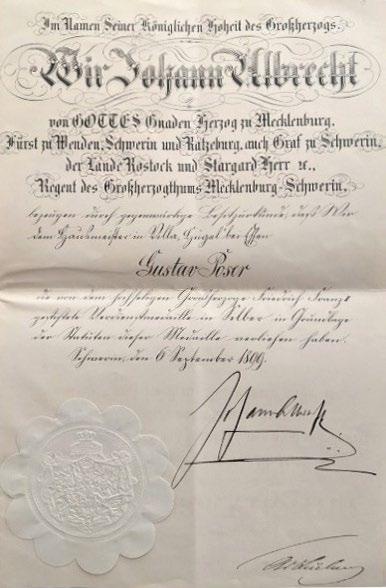 Im Namen Seiner Königlichen Hoheit des Großherzogs.
Wir Johann Albrecht
von GOTTES Gnaden Herzog zu Mecklenburg,
Fürst zu Wenden, Schwerin und Ratzeburg, auch Graf zu Schwerin,
der Lande Rostock und Stargard Herr ꝛc.,
Regent des Großherzogthums Mecklenburg-Schwerin,
bezeugen durch gegenwärtige Besitzurkunde, daß Wir
dem Hausmeister in Villa Hügel bei Essen
Gustav Poser
die von dem hochseligen Großherzoge Friedrich Franz
gestiftete Verdienstmedaille in Silber in Grundlage
der Statuten dieser Medaille verliehen haben.
Schwerin, den 6 September 1899.
Johann Albrecht